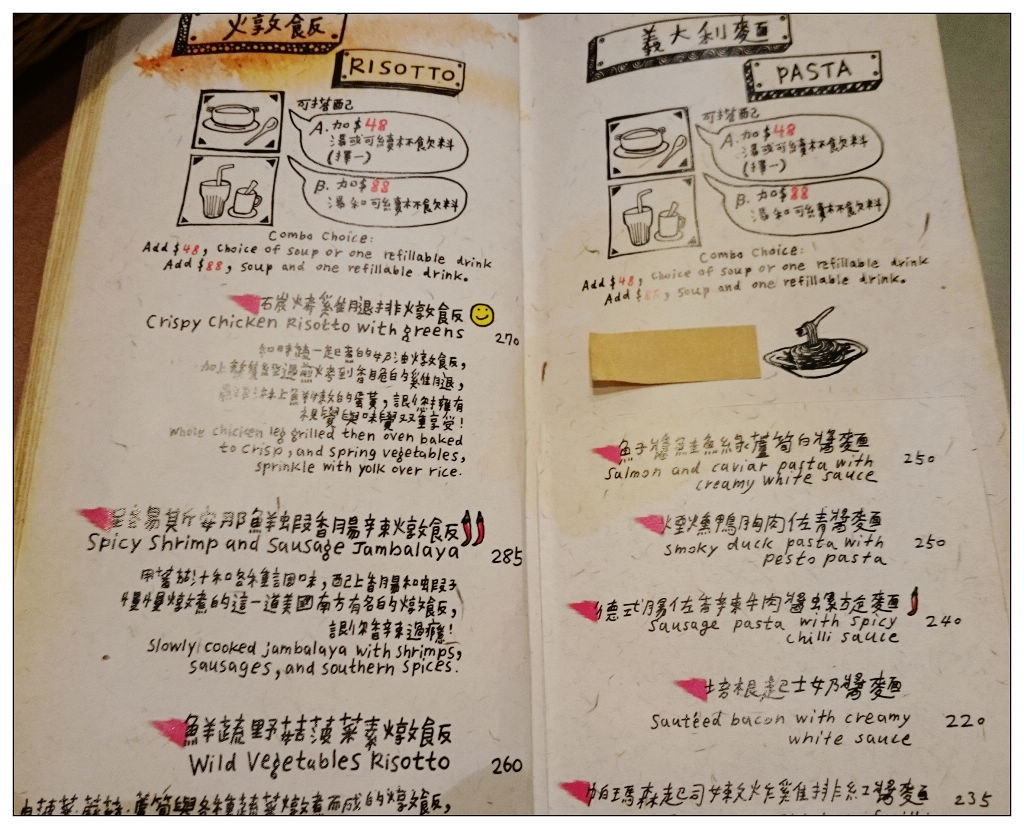 火燉飯
RISOTTO
可搭配
A. 加$48
湯或可續杯飲料
(擇一)
B. 加$88
湯和可續杯飲料
Combo Choice:
Add $48, choice of soup or one refillable drink
Add $88, soup and one refillable drink.
石炭烤雞腿排燉飯
Crispy Chicken Risotto with greens
270
和時蔬一起煮的奶油燉飯,
讓你擁有
視覺與味覺雙重享受!
whole chicken leg grilled then oven baked
to crisp, and spring vegetables,
sprinkle with yolk over rice.
鮮蝦香腸辛辣燉飯
Spicy Shrimp and Sausage Jambalaya
285
用蕃茄汁和各種調味,配上香腸和蝦子
慢慢燉煮的這一道美國南方有名的燉飯,
讓你香辣過癮!
Slowly cooked jambalaya with shrimps,
sausages, and southern spices.
鮮蔬野菇菠菜素燉飯
Wild Vegetables Risotto
260
蘆筍與各種蔬菜燉煮而成的燉飯,
義大利麵
PASTA
可搭配
A. 加$48
湯或可續杯飲料
(擇一)
B. 加$88
湯和可續杯飲料
Combo Choice:
Add $48, choice of soup or one refillable drink
Add $88, soup and one refillable drink.
魚子醬鮭魚綠蘆筍白醬麵
250
Salmon and caviar pasta with
creamy white sauce
煙燻鴨胸肉佐青醬麵
250
smoky duck pasta with
pesto pasta
德式腸佐香辣牛肉醬螺旋麵
240
sausage pasta with spicy
chilli sauce
培根起士奶醬麵
220
Sauteed bacon with creamy
white sauce
帕瑪森起司辣炸雞排紅醬麵
235